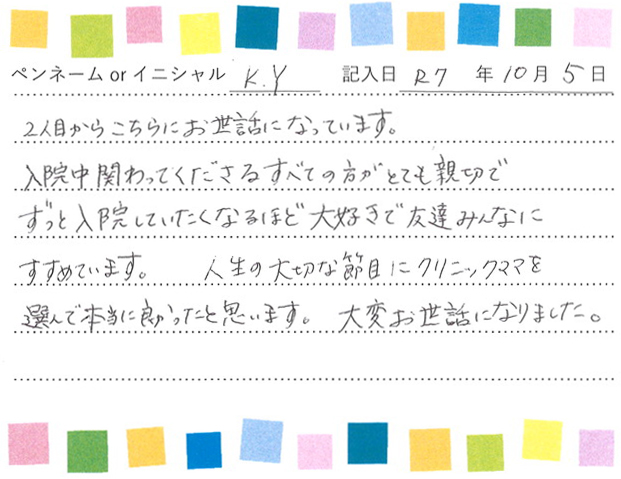 ペンネーム or イニシャル K.Y 記入日 R7 年 10 月 5 日
2人目からこちらにお世話になっています。
入院中関わってくださるすべての方がとても親切で
ずっと入院していたくなるほど大好きで友達みんなに
すすめています。 人生の大切な節目にクリニックママを
選んで本当に良かったと思います。 大変お世話になりました。